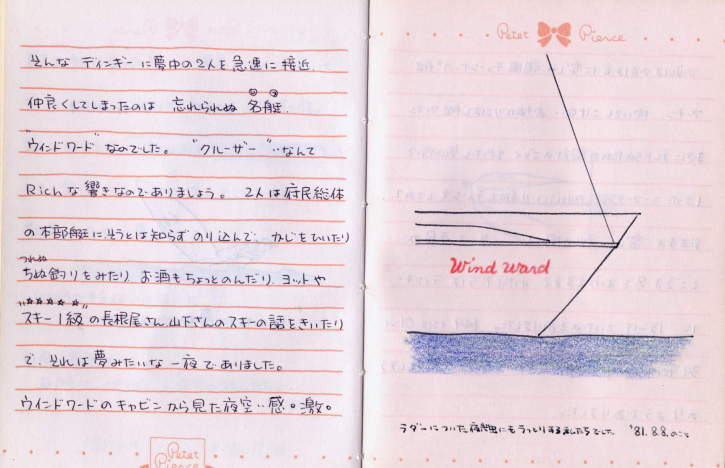 そんな ディンギーに夢中の2人を急速に接近、
仲良くしてしまったのは 忘れられぬ 名艇、
"ウィンドワード"なのでした。 "クルーザー"‥なんて
Richな響きなのでありましょう。 2人は府民総体
の本部艇にそうとは知らずのり込んで‥かじをひいたり
つれぬ
ちぬ釣りをみたり お酒もちょっとのんだり、ヨットや
スキー1級の長根尾さん、山下さんのスキーの話をきいたり
で、それは夢みたいな一夜でありました。
ウインドワードのキャビンから見た夜空‥感。激。
Petet Pierce
Petet Pierce
Wind ward
ラダーについた夜光虫にもうっとり
'81.8.8.のこと